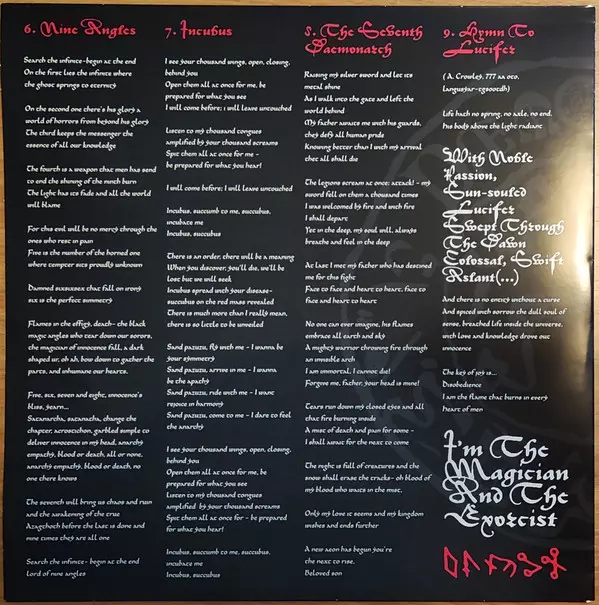 6. Nine Angles
Search the infinite- begin at the end
On the first lies the infinite where
the ghost springs to eternity
On the second one there's his glory a
world of horrors from beyond his glory
The third keeps the messenger the
essence of all our knowledge
The fourth is a weapon that men has send
to end the shining of the ninth burn
The light has its fade and all the world
will blame
For this evil will be no mercy through the
ones who rest in pain
Five is the number of the horned one
where tempter sits proudly unknown
Damned sixsixsex that fall on irons
six is the perfect symmetry
Flames in the effigy, death- the black
magic angles who tear down our sorors,
the magician of innocence fall, a dark
shaped ur, oh ah, bow down to gather the
parts, and inhumane our hearts.
Five, six, seven and eight, innocence's
bliss, yearn...
Satamarcha, satanacha, change the
chapter, acroutichon, garbled simple to
deliver innocence in my head, anarchy
empathy, blood or death, all or none,
anarchy empathy, blood or death, no
one there knows
The seventh will bring us chaos and ruin
and the awakening of the true
Azagthoth before the last is done and
nine times they are all one
Search the infinite- begin at the end
Lord of nine angles
7. Incubus
I see your thousand wings, open, closing,
behind you
Open them all at once for me, be
prepared for what you see
I will come before; i will leave untouched
Listen to my thousand tongues
amplified by your thousand screams
Spit them all at once for me -
be prepared for what you hear!
I will come before; i will leave untouched
Incubus, succumb to me, succubus,
incubate me
Incubus, succubus
There is an order, there will be a meaning
When you discover, you'll die, we'll be
lost but we will seek
Incubus spread with your disease-
succubus on the red mass revealed
There is much more than I really mean,
there is so little to be unveiled
Sand pazuzu, fly with me - I wanna be
your symmetry
Sand pazuzu, arrive in me - I wanna
be the apathy
Sand pazuzu, ride with me - I want
rejoice in harmony
Sand pazuzu, come to me - I dare to feel
the anarchy
I see your thousand wings, open, closing,
behind you
Open them all at once for me, be
prepared for what you see
Listen to my thousand tongues
amplified by your thousand screams
Spit them all at once for me - be prepared
for what you hear!
Incubus, succumb to me, succubus,
incubate me
Incubus, succubus
8. The Seventh
Daemonarch
Raising my silver sword and let its
metal shine
As I walk into the gate and left the
world behind
My father awaits me with his guards,
they defy all human pride
Knowing better than I with my arrival
they all shall die
The legions scream at once: attack! - my
sword fall on them a thousand times
I was welcomed by fire and with fire
I shall depart
Yet in the deep, my soul will, always
breathe and feel in the deep
At last I met my father who has destined
me for this fight
Face to face and heart to heart, face to
face and heart to heart
No one can ever imagine, his flames
embrace all earth and sky
A mighty warrior throwing fire through
an invisible arch
I am immortal, I cannot die!
Forgive me, father, your head is mine!
Tears run down my closed eyes and all
that fire burning inside
A mist of death and pain for some -
I shall await for the next to come
The night is full of creatures and the
snow shall erase the tracks- oh blood of
my blood who waits in the mist.
Only my love it seems and my kingdom
wishes and ends further
A new aeon has begun you're
the next to rise,
Beloved son
9. Hymn To
Lucifer
( A. Crowley, 777 aa oto,
Life hath no spring, no axle, no end.
his body above the light radiant
With Noble
Passion,
Sun-souled
Lucifer
Swept Through
The Dawn
Colossal, Swift
Aslant(...)
And there is no entity without a curse
And spiced with sorrow the dull soul of
sense, breathed life inside the universe,
with love and knowledge drove out
innocence
The key of joy is...
Disobedience
I am the flame that burns in every
heart of men
I'm The
Magician
And The
Exorcist